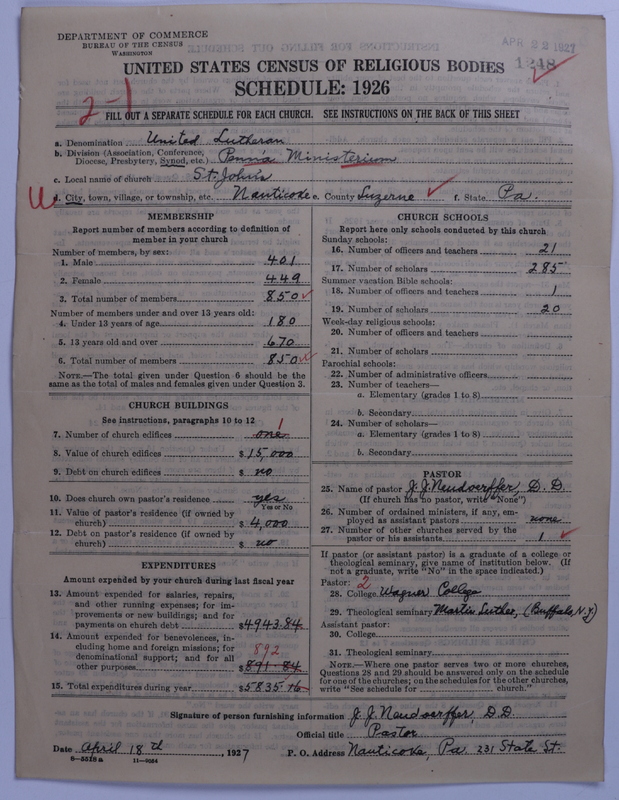 DEPARTMENT OF COMMERCE
BUREAU OF THE CENSUS
WASHINGTON
APR 22 1927
1248
UNITED STATES CENSUS OF RELIGIOUS BODIES
SCHEDULE: 1926
2-1
FILL OUT A SEPARATE SCHEDULE FOR EACH CHURCH. SEE INSTRUCTIONS ON THE BACK OF THIS SHEET
a. Denomination United Lutheran
b. Division (Association, Conference, Diocese, Presbytery, Synod, etc.) Penn'a Ministerium
c. Local name of church St. John's
d. City, town, village, or township, etc. Nanticoke e. County Luzerne f. State Pa.
MEMBERSHIP
Report number of members according to definition of
member in your church
Number of members, by sex:
1. Male 401
2. Female 449
3. Total number of members 850
Number of members under and over 13 years old:
4. Under 13 years of age 180
5. 13 years old and over 670
6. Total number of members 850
NOTE.—The total given under Question 6 should be
same as the total of males and females given under Question 3.
CHURCH BUILDINGS
See instructions, paragraphs 10 to 12
7. Number of church edifices one 1
8. Value of church edifices $15,000
9. Debt on church edifices $ no
10. Does church own pastor's residence yes
Yes or No
11. Value of pastor's residence (if owned by
church) $4,000
12. Debt on pastor's residence (if owned by
church) $ no
EXPENDITURES
Amount expended by your church during last fiscal year
13. Amount expended for salaries, repairs,
and other running expenses; for im-
provements or new buildings; and for
payments on church debt $4943.84
14. Amount expended for benevolences, in-
cluding home and foreign missions; for
denominational support; and for all 892
other purposes $891.84
15. Total expenditures during year $5835
CHURCH SCHOOLS
Report here only schools conducted by this church
Sunday schools:
16. Number of officers and teachers 21
17. Number of scholars 285
Summer vacation Bible schools:
18. Number of officers and teachers 1
19. Number of scholars 20
Week-day religious schools:
20. Number of officers and teachers
21. Number of scholars
Parochial schools:
22. Number of administrative officers
23. Number of teachers—
a. Elementary (grades 1 to 8)
b. Secondary
24. Number of scholars—
a. Elementary (grades 1 to 8)
b. Secondary
PASTOR
25. Name of pastor J. J. Neudoerffer, D. D.
(If church has no pastor, write "None")
26. Number of ordained ministers, if any, em-
ployed as assistant pastors none
27. Number of other churches served by the
pastor or his assistants 1
If pastor (or assistant pastor) is a graduate of a college or
theological seminary, give name of institution below. (If
not a graduate, write "No" in the space indicated.)
Pastor: 2
28. College Wagner College
29. Theological seminary Martin Luther, (Buffalo, N.Y)
Assistant pastor:
30. College
31. Theological seminary
NOTE.—Where one pastor serves two or more churches,
Questions 28 and 29 should be answered only on the schedule
for one of the churches; on the schedules for the other churches,
write "See schedule for church."
Signature of person furnishing information J. J. Neudoerffer, D.D.
Official title Pastor
Date April 18th, 1927 P. O. Address Nanticoke, Pa. 231 State St.
8-3518a 11-9084